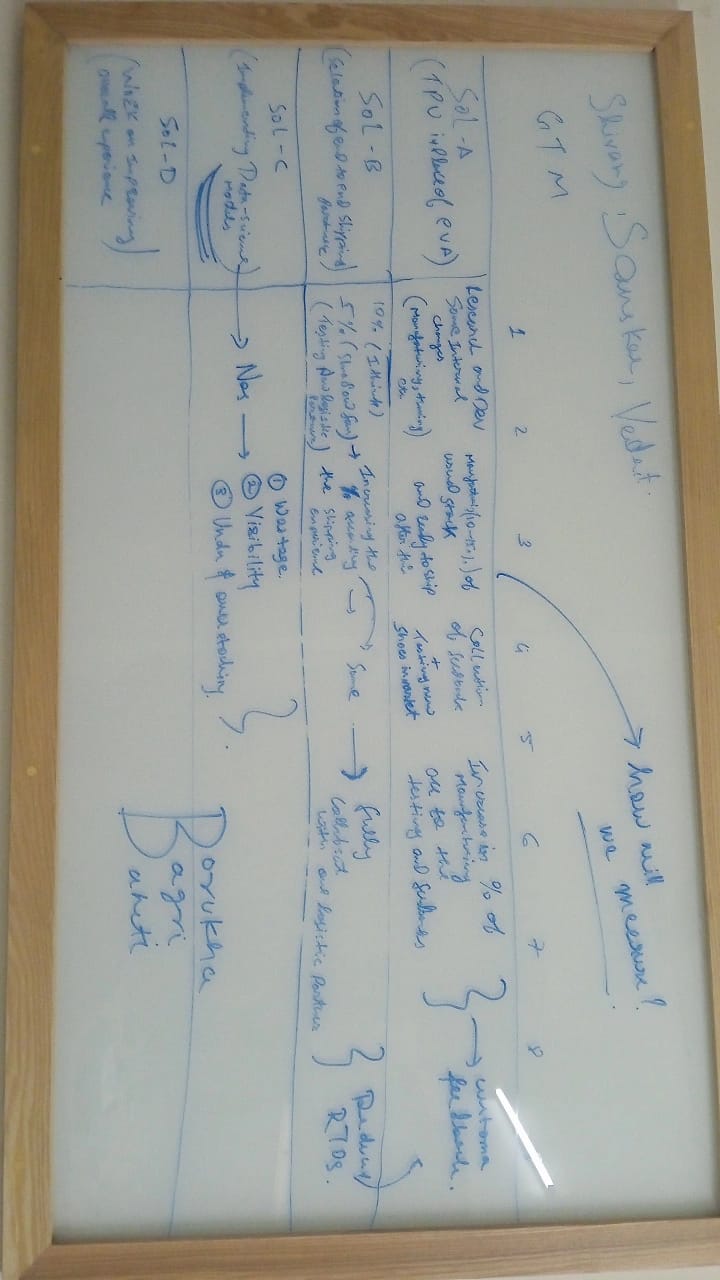 Shivang, Sanskar, Vedant.
how will
we measure?
GTM 1 2 3 4 5 6 7 8
Sol-A
(TPU instead of EVA)
Research and Dev
Some Internal
changes
(Manufacturing, timing)
etc
(10-15%) of
usual stock
and ready to ship
after the
Collection
of feedback
+
Testing new
shoes in market
Increase in % of
Manufacturing
due to the
testing and feedback
} → customer
feedback.
Sol-B
(Selection of end to end shipping
partner)
10% (I think)
5% (
(Testing new logistic
partner)
→ Increasing the
% according
the shipping
experience
→ Same → fully
collaborate
with one logistic partner
} Reduced
RTOs.
Sol-C
(Implementing Data-science
models)
→ Nos →
① Wastage.
② Visibility
③ Under & over stocking.
}.
Sol-D
(Work on improving
overall experience)
Borukha
Bagri
Baheti